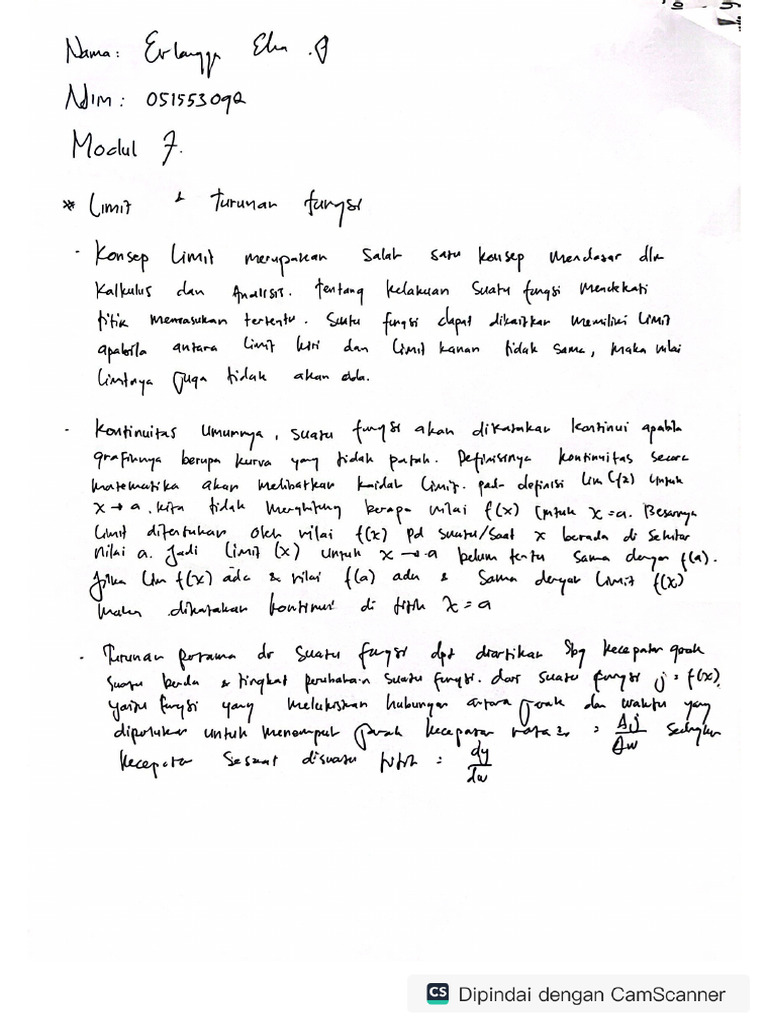 Nama : Erlangga Eka .P
NIM : 051553092
Modul 7.
* Limit & Turunan fungsi
- Konsep Limit merupakan Salah satu konsep mendasar dlm
Kalkulus dan Analisis. tentang kelakuan Suatu fungsi mendekati
titik memasukan tertentu. Suatu fungsi dapat dikaitkan memiliki limit
apabila antara limit kiri dan limit kanan tidak sama, maka nilai
limitnya juga tidak akan ada.
- Kontinuitas Umumnya, suatu fungsi akan dikatakan kontinui apabila
grafiknya berupa kurva yang tidak patah. Definisinya kontinuitas secara
matematika akan melibatkan kaidah limit. pada definisi lim C(x) untuk
x → a, kita tidak menghitung berapa nilai f(x) untuk x = a. Besarnya
limit ditentukan oleh nilai f(x) pd suatu/saat x berada di sekitar
nilai a. Jadi limit (x) untuk x → a belum tentu sama dengan f(a).
Jika lim f(x) ada & nilai f(a) ada & sama dengan limit f(x)
maka dikatakan kontinui di titik x = a
- Turunan pertama dr suatu fungsi dpt diartikan Sbg kecepatan gerak
suatu benda & tingkat perubahan suatu fungsi. dari suatu fungsi j = f(x),
yaitu fungsi yang melukiskan hubungan antara jarak dan waktu yang
diperlukan untuk menempuh jarak kecepatan rata2 = Δj/Δw sedangkan
kecepatan sesaat disuatu titik = dy/dw
CS Dipindai dengan CamScanner